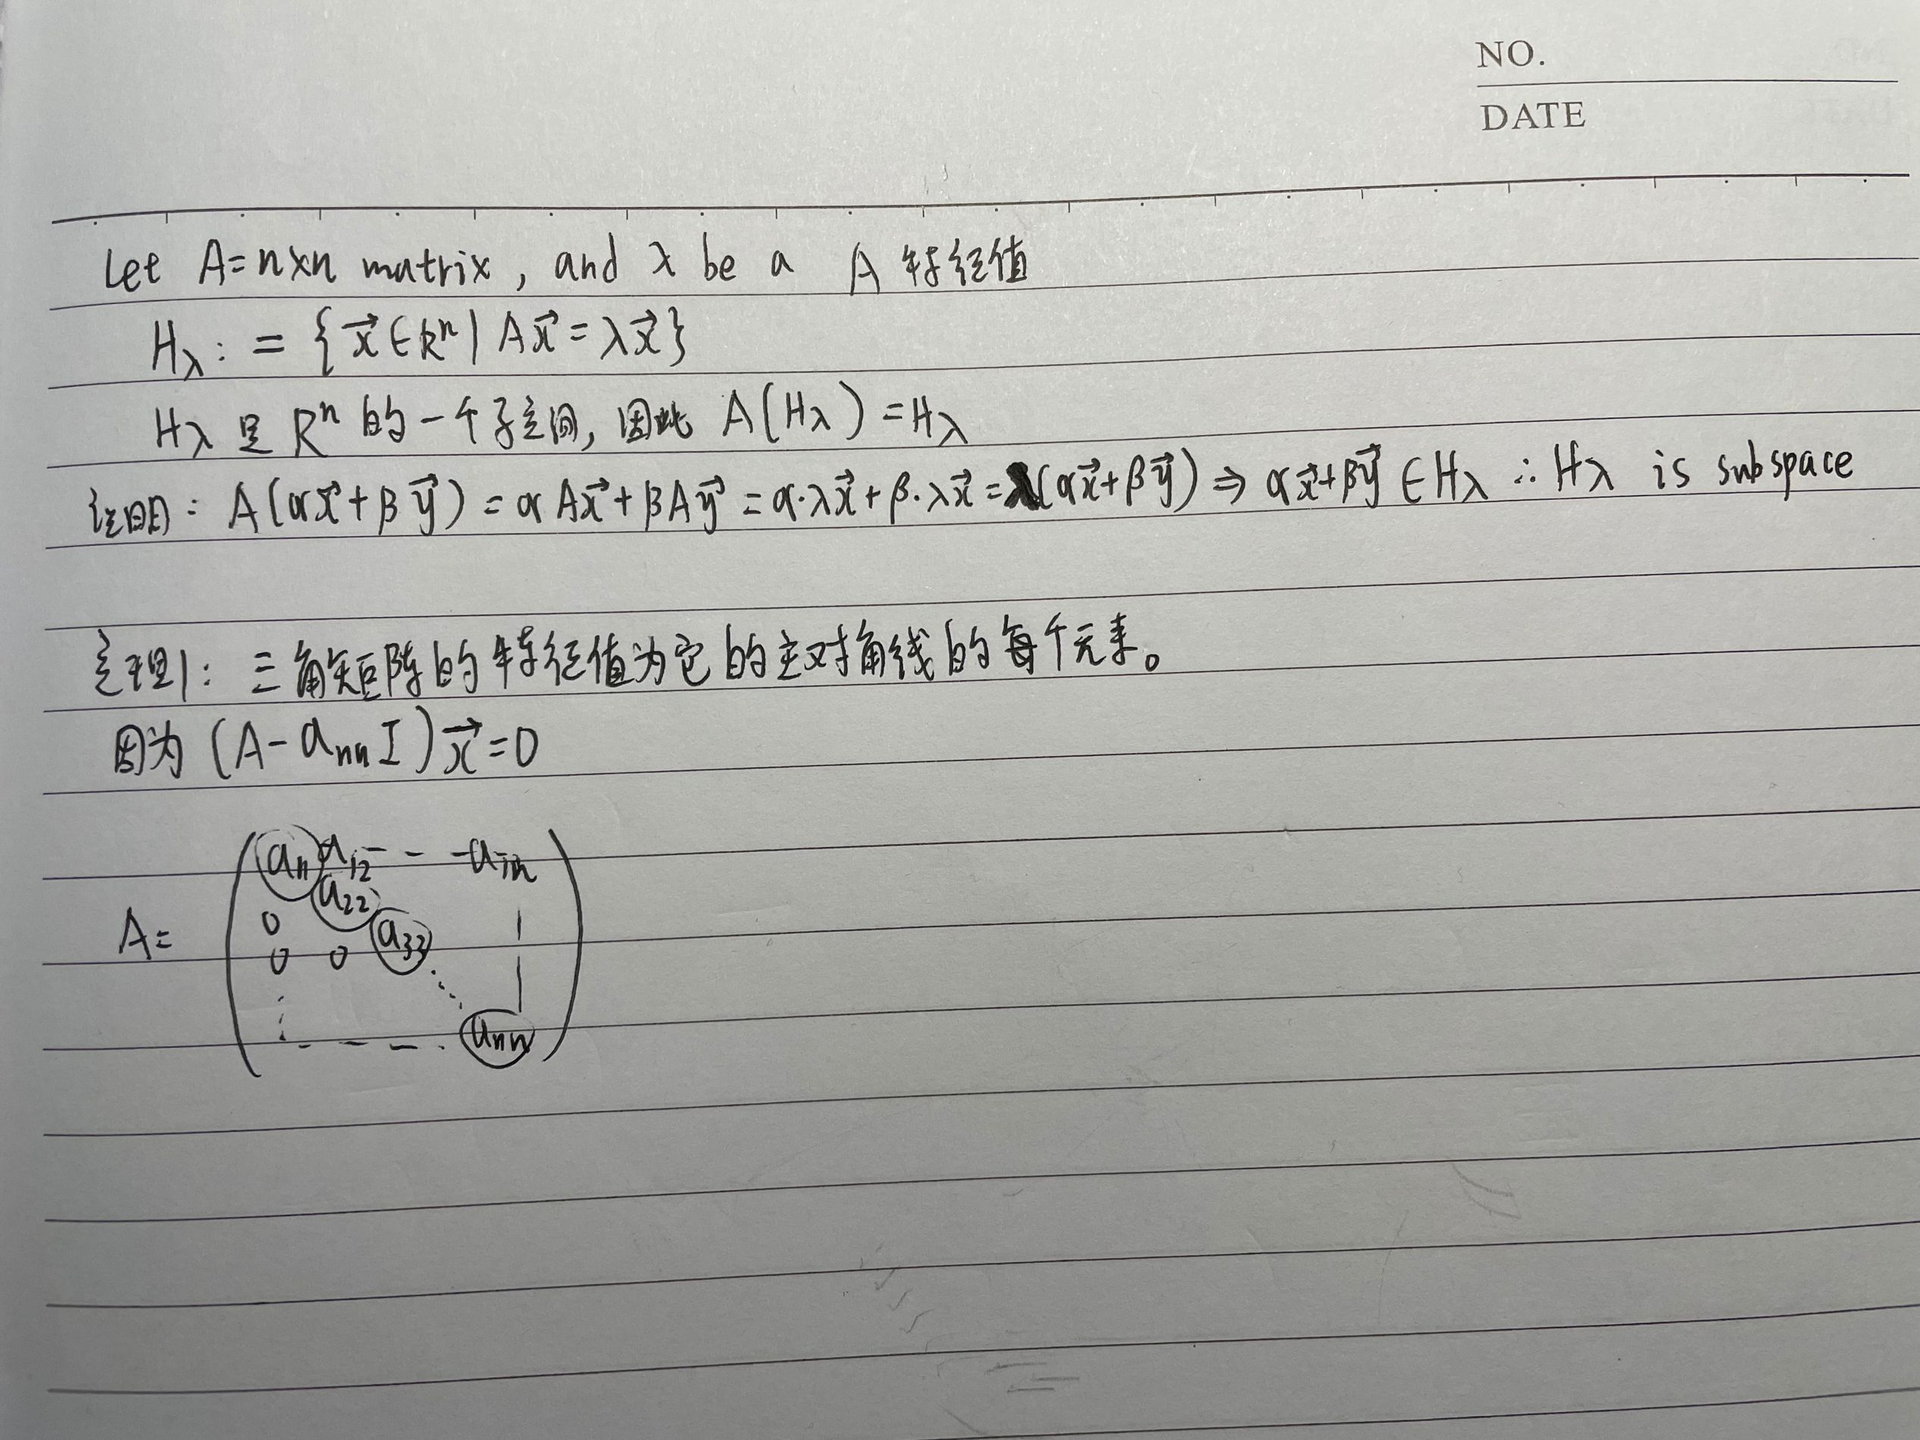 NO.
DATE
Let A=n×n matrix, and λ be a A 特征值
Hλ := {x⃗∈Rⁿ | Ax⃗=λx⃗}
Hλ 是 Rⁿ 的一个子空间, 因此 A(Hλ)=Hλ
证明: A(αx⃗+βy⃗)=αAx⃗+βAy⃗=α·λx⃗+β·λx⃗=λ(αx⃗+βy⃗)⇒αx⃗+βy⃗∈Hλ ∴Hλ is subspace
定理1: 三角矩阵的特征值为它的主对角线的每个元素。
因为 (A-aₙₙI)x⃗=0
A= ( a₁₁ a₁₂ - - - a₁ₙ
0 a₂₂ |
0 0 a₃₃ |
⋮ - - - aₙₙ )